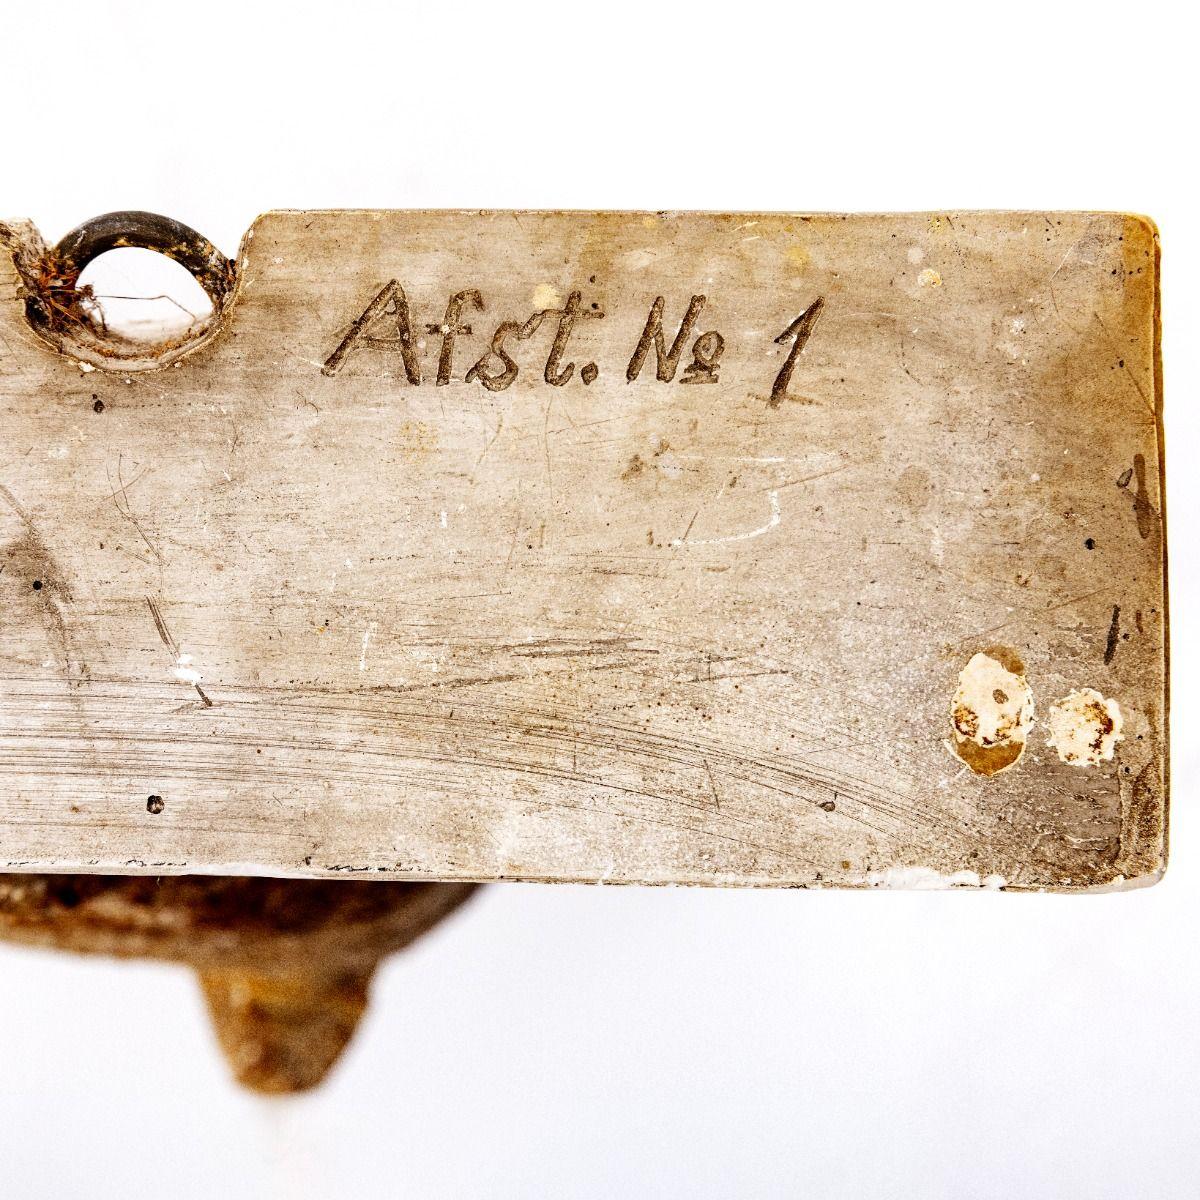 Afst. № 1